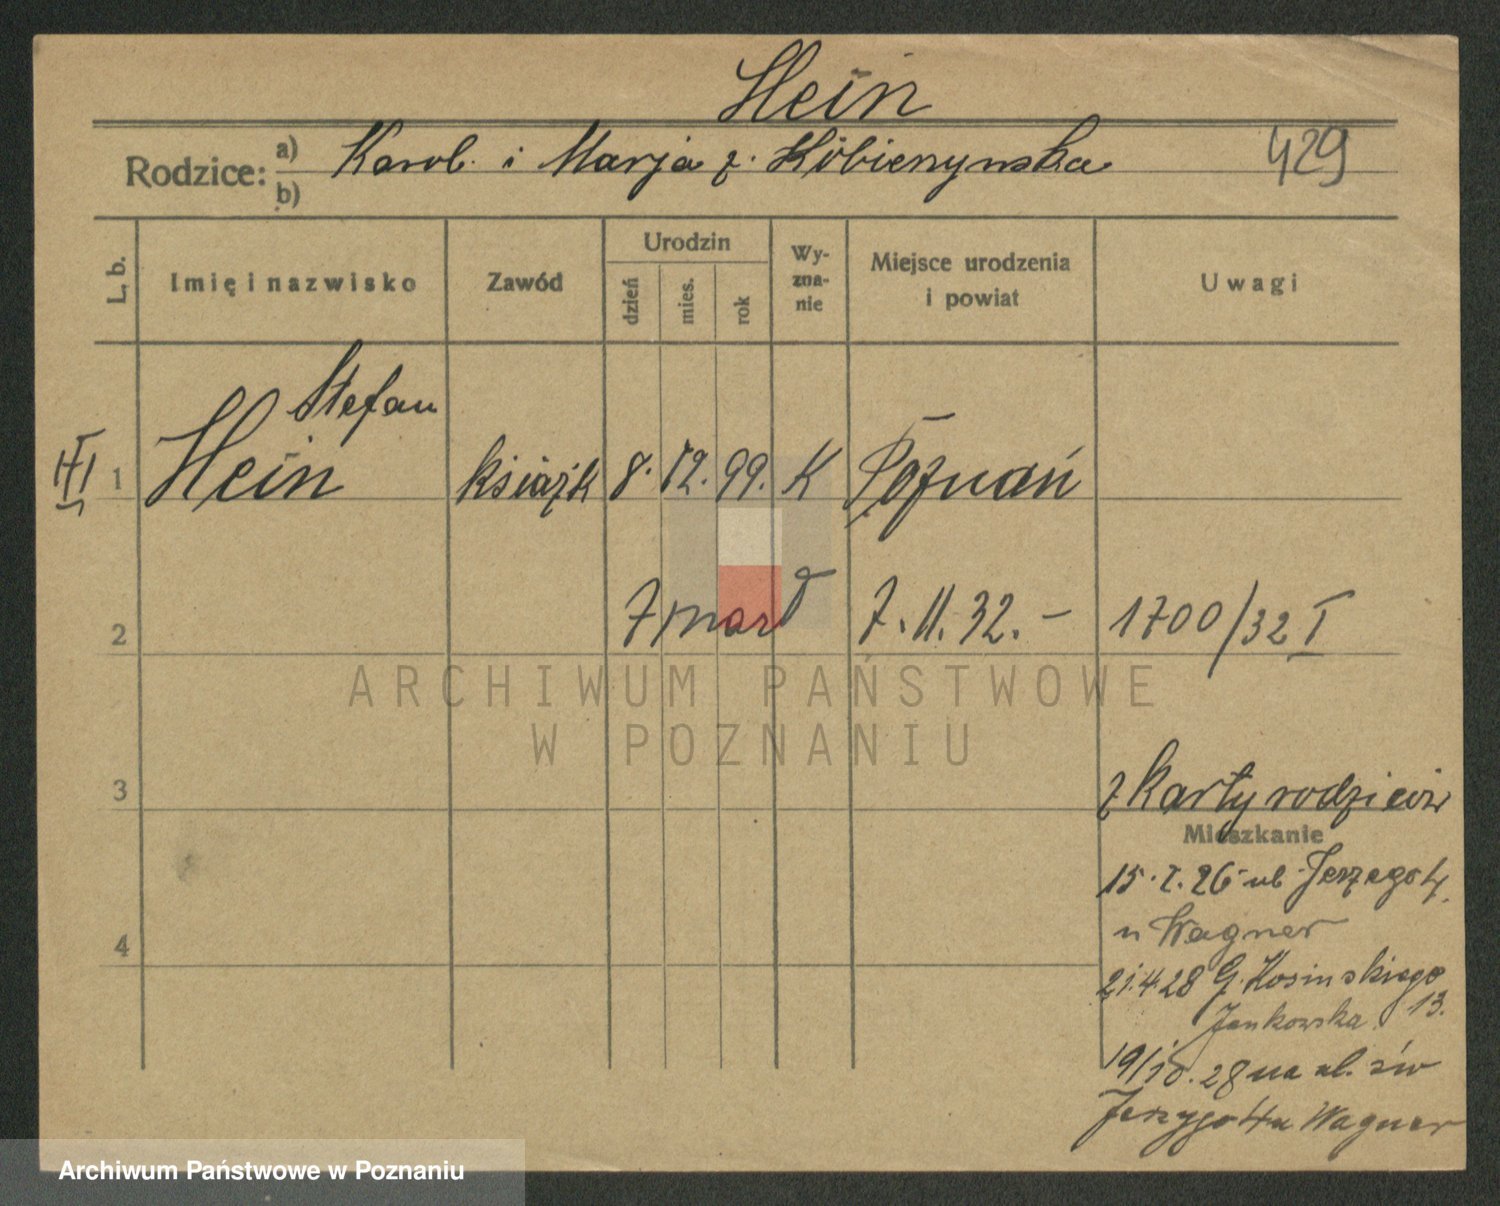 Hein
Rodzice: a) Karol i Marja z. Kobierzynska
b)
429
L. b. Imię i nazwisko Zawód Urodzin dzień mies. rok Wy-zna-nie Miejsce urodzenia i powiat Uwagi
Stefan
1 Hein książk 8. 12. 99. K Poznań
2 zmarł 7. 11. 32. – 1700/32 I
ARCHIWUM PAŃSTWOWE
W POZNANIU
3 z karty rodziców
Mieszkanie
15. I. 26 ul Jerzego 4.
u Wagner
4
21.4.28 G. Kosinskiego
Jankowska 13.
19/10. 28 na ul. św
Jerzego 4 u Wagner
Archiwum Państwowe w Poznaniu